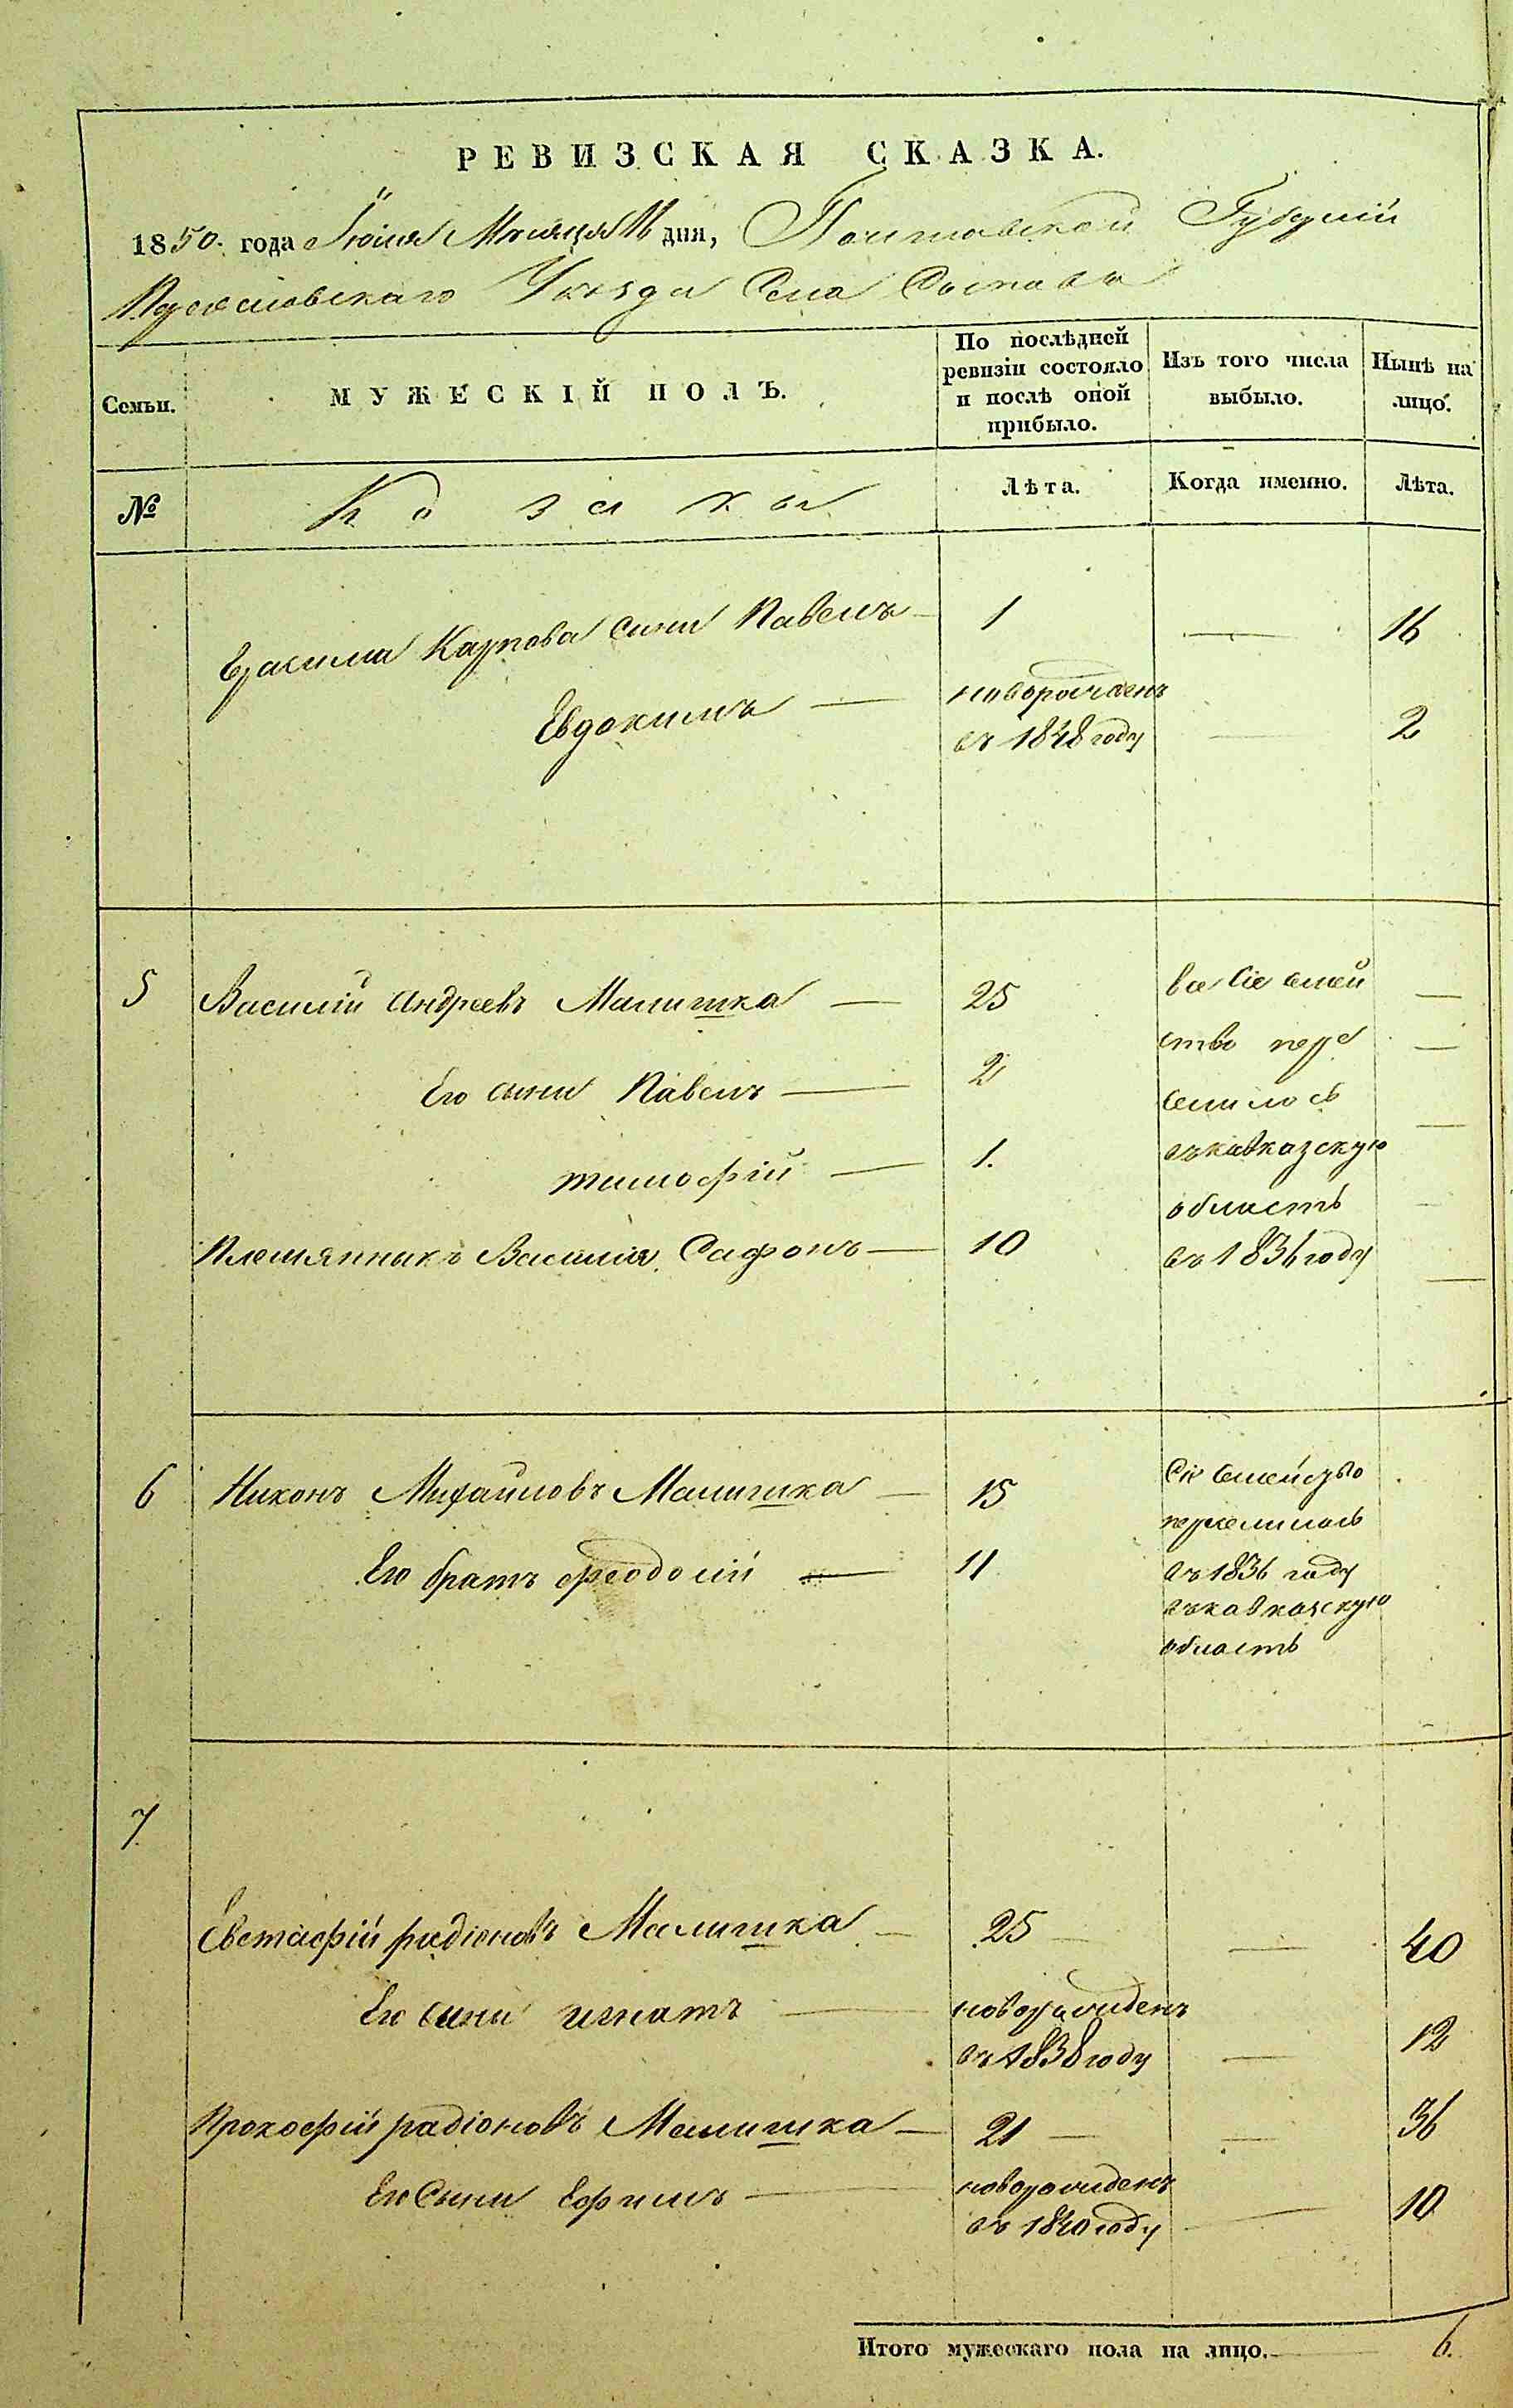 РЕВИЗСКАЯ СКАЗКА.
1850. года Июля Месяца 16 дня, Полтавской Губерніи
Переяславскаго Уезда Села
Семьи.
МУЖЕСКІЙ ПОЛЪ.
По послѣдней ревизіи состояло и послѣ оной прибыло.
Изъ того числа выбыло.
Нынѣ на лицо.
№
Козаки
Лѣта.
Когда именно.
Лѣта.
Карпова сини Павелъ — 1 — 16
Евдокимъ — новорожденъ въ 1848 году — 2
5 Василій Андреевъ Малишка — 25 все сіе семей —
Его сини Павелъ — 2 ство пере —
селилось
тимофій — 1. въ кавказскую —
область
Племянныкъ Василія Сафонъ — 10 въ 1836 году —
6 Никонъ Михайловъ Малишка — 15 сіе семейство
переселилось
Его братъ феодосій — 11 въ 1836 году
въ кавказскую
область
7
Евстафій радіоновъ Малишка — 25 — — 40
Его сини игнатъ — новорожиденъ
въ 1838 году — 12
Прокофій радіоновъ Малишка — 21 — — 36
Его Сини Ефимъ — новорожиденъ
въ 1840 году — 10
Итого мужескаго пола на лицо. — 6.